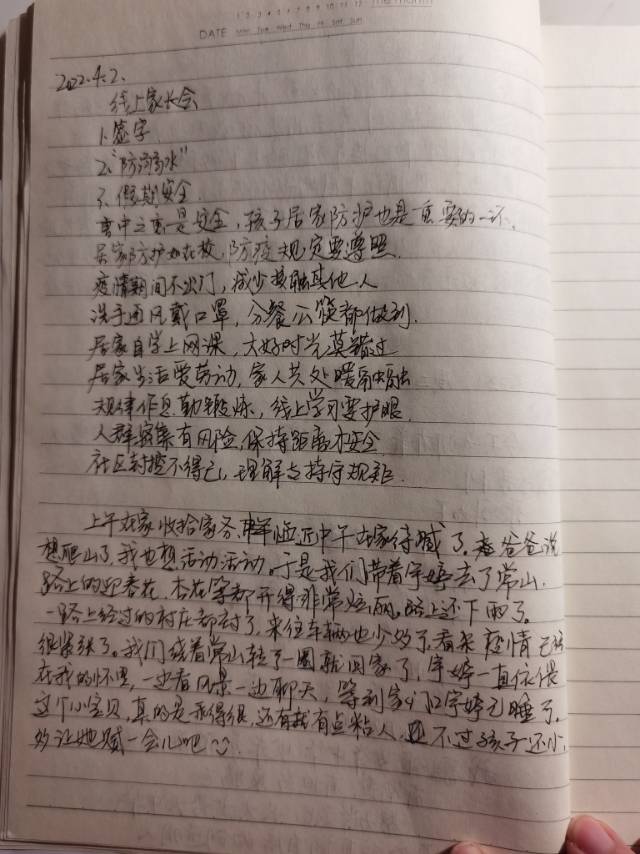 1 2 3 4 5 6 7 8 9 10 11 12
DATE Mon Tue Wed Thu Fri Sat Sun
2022.4.2.
线上家长会
1.签字
2."防溺水"
3.假期安全.
重中之重是安全,孩子居家防护也是重要的一环.
居家防护如在校,防疫规定要遵照.
疫情期间不出门,减少接触其他人
洗手通风戴口罩,分餐公筷都做到.
居家自学上网课,大好时光莫错过
居家生活要劳动,家人共处暖融融
规律作息勤锻炼,线上学习要护眼.
人群密集有风险,保持距离才安全.
社区封控不得已,理解支持守规矩.
上午在家收拾家务,临近中午在家待腻了,爸爸说
想爬山了,我也想活动活动,于是我们带着宇婷去了常山.
路上的迎春花、杏花等都开得非常炫丽,路上还下雨了.
一路上经过的村庄都封了,来往车辆也少多了,看来疫情已经
很紧张了.我们绕着常山转了一圈就回家了,宇婷一直依偎
在我的怀里,一边看风景一边聊天,等到家门口宇婷已睡了,
这个小宝贝,真的是乖得很,还有就有点粘人,不过孩子还小,
多让她腻一会儿吧